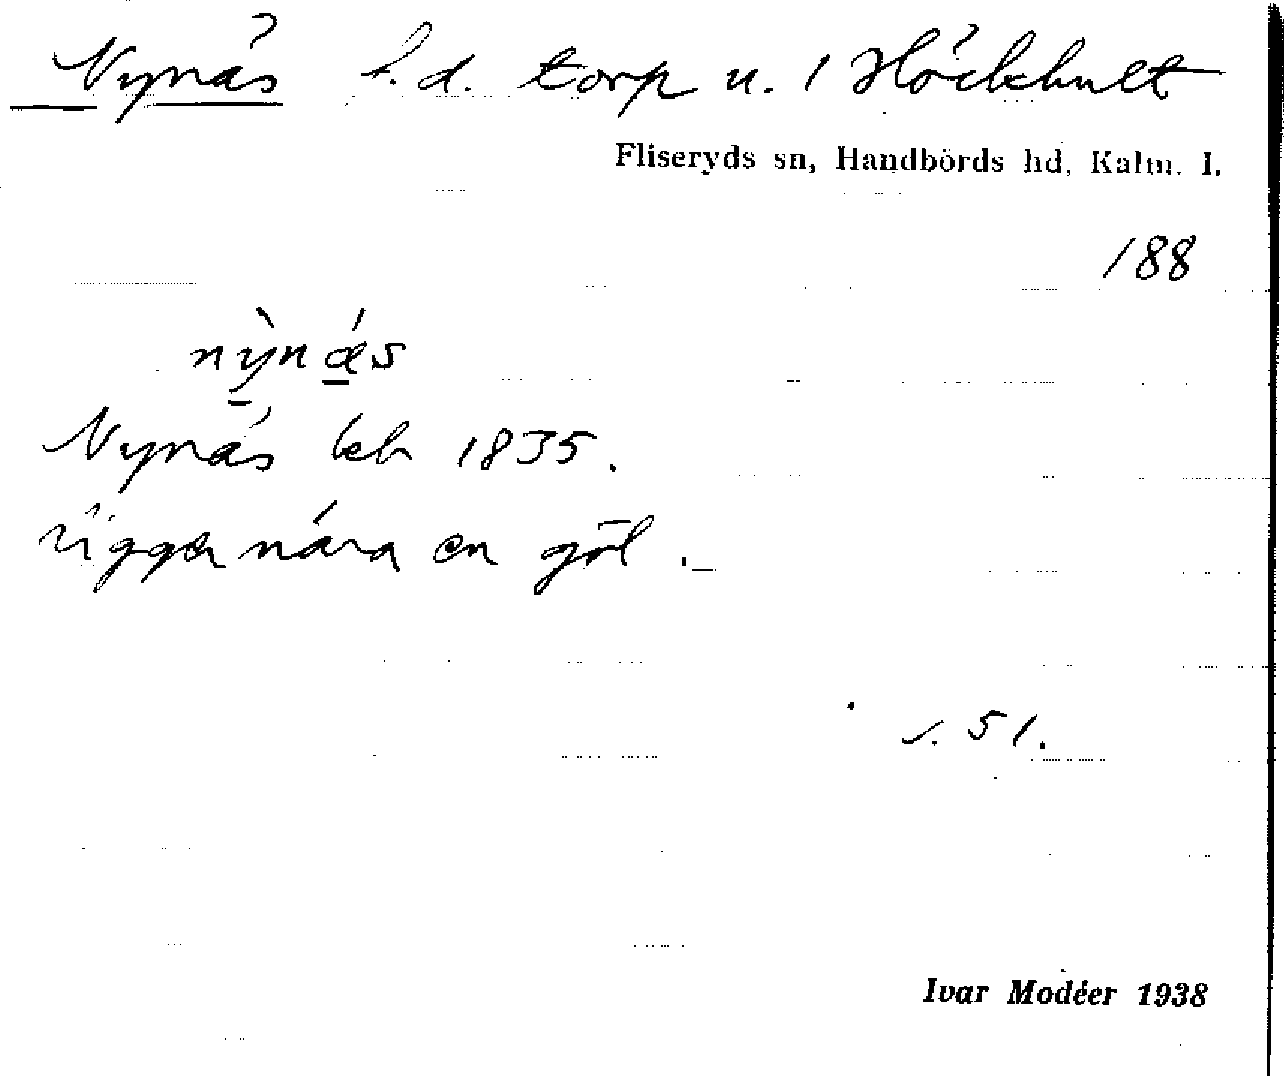 Nynäs f.d. torp u. 1 Höckhult
Fliseryds sn, Handbörds hd, Kalm. l.
188
nỳnǽs
Nynäs kb 1835.
ligger nära en göl.
s. 51.
Ivar Modéer 1938